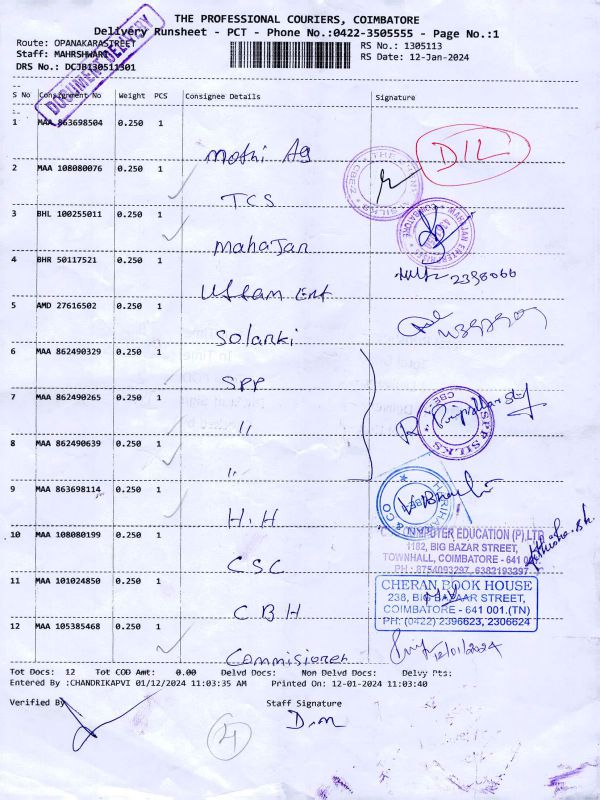 THE PROFESSIONAL COURIERS, COIMBATORE
Delivery Runsheet - PCT - Phone No.:0422-3505555 - Page No.:1
Route: OPANAKARASTREET
RS No.: 1305113
Staff: MAHRSHWARI
RS Date: 12-Jan-2024
DRS No.: DCJB130511301
DOCUMENT DELIVERY
S No Consignment No Weight PCS Consignee Details Signature
1 MAA 863698504 0.250 1
Mothi Ag
DIL
2 MAA 108080076 0.250 1
TCS
3 BHL 100255011 0.250 1
Mahajan
4 BHR 50117521 0.250 1
Uttam Ent
5 AMD 27616502 0.250 1
Solanki
6 MAA 862490329 0.250 1
SPP
7 MAA 862490265 0.250 1
"
SPP SILKS
CBE-1
8 MAA 862490639 0.250 1
"
9 MAA 863698114 0.250 1
H.H
HARIHARAN & CO
10 MAA 108080199 0.250 1
CSC
COMPUTER EDUCATION (P).LTD
1182, BIG BAZAR STREET,
TOWNHALL, COIMBATORE - 641 001
11 MAA 101024850 0.250 1
CBH
CHERAN BOOK HOUSE
238, BIG BAZAAR STREET,
COIMBATORE - 641 001.(TN)
PH: (0422) 2396623, 2306624
12 MAA 105385468 0.250 1
Commisioner
12/01/2024
Tot Docs: 12 Tot COD Amt: 0.00 Delvd Docs: Non Delvd Docs: Delvy Pts:
Entered By :CHANDRIKAPVI 01/12/2024 11:03:35 AM Printed On: 12-01-2024 11:03:40
Verified By
Staff Signature
D.M
4